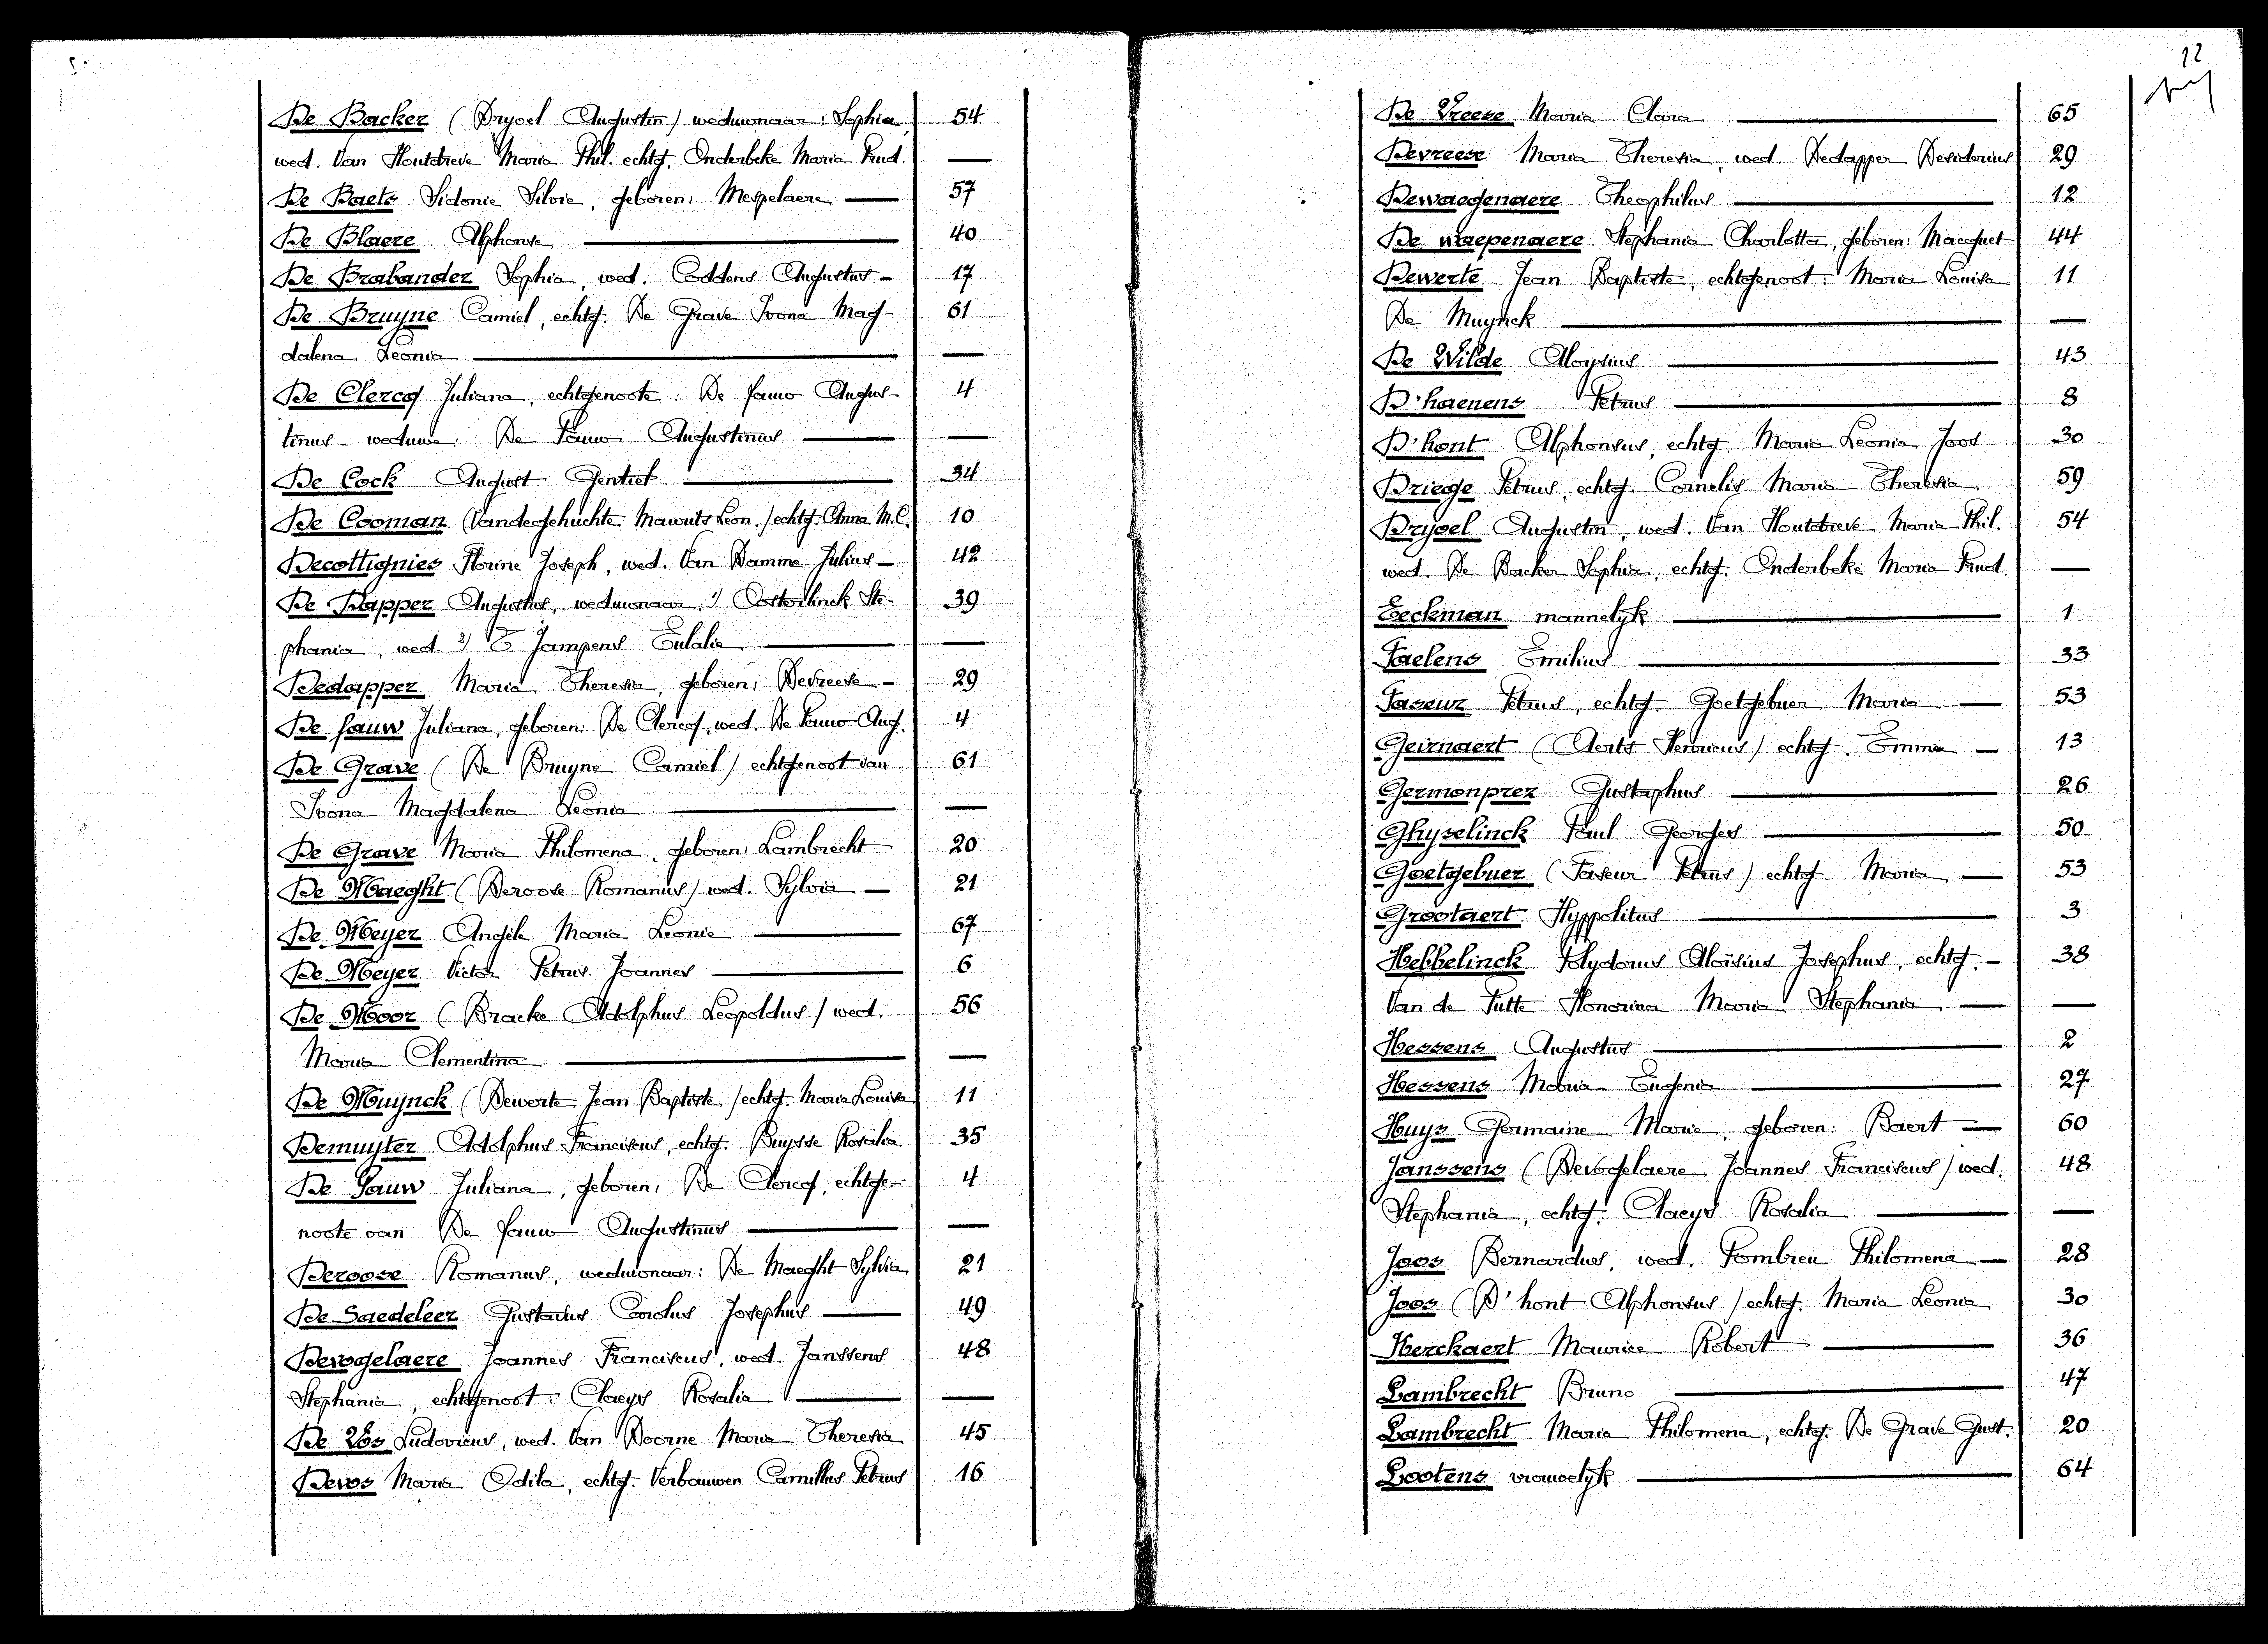 De Backer (Dryoel Augustin) weduwnaar: Sophia, 54
wed. Van Houtdreve Maria Phil. echtg. Onderbeke Maria Prud. —
De Baets Sidonie Silvie, geboren: Mespelaere — 57
De Blaere Alphonse — 40
De Brabander Sophia, wed. Coddens Augustus — 17
De Bruyne Camiel, echtg. De Grave Ivona Mag- 61
dalena Leonia — —
De Clercq Juliana, echtgenoote: De Pauw Augus- 4
tinus - weduwe: De Pauw Augustinus — —
De Cock August Gentiel — 34
De Cooman (Vandegehuchte Maurits Leon.) echtg. Anna M.C. 10
Decottignies Florine Joseph, wed. Van Damme Julius — 42
De Dapper Augustus, weduwnaar: 1) Oosterlinck Ste- 39
phania, wed. 2) T'Jampens Eulalie — —
Dedapper Maria Theresia, geboren: Devreese — 29
De Fauw Juliana, geboren: De Clercq, wed. De Pauw Aug. 4
De Grave (De Bruyne Camiel) echtgenoot van 61
Ivona Magdalena Leonia — —
De Grave Maria Philomena, geboren: Lambrecht 20
De Maeght (Deroose Romanus) wed. Sylvia — 21
De Meyer Angèle Maria Leonie — 67
De Meyer Victor Petrus Joannes — 6
De Moor (Bracke Adolphus Leopoldus) wed. 56
Maria Clementina — —
De Muynck (Dewerte Jean Baptiste) echtg. Maria Louisa 11
Demuyter Adolphus Franciscus, echtg. Buysse Rosalia 35
De Pauw Juliana, geboren: De Clercq, echtge- 4
noote van De Fauw Augustinus — —
Deroose Romanus, weduwnaar: De Maeght Sylvia 21
De Saedeleer Gustavus Carolus Josephus — 49
Devogelaere Joannes Franciscus, wed. Janssens 48
Stephania, echtgenoot: Claeys Rosalia — —
De Vos Ludovicus, wed. Van Doorne Maria Theresia 45
Devos Maria Odila, echtg. Verbauwen Camillus Petrus 16
12
De Vreese Maria Clara — 65
Devreese Maria Theresia, wed. Dedapper Desiderius 29
Dewaegenaere Theophilus — 12
De waepenaere Stephania Charlotta, geboren: Macquet 44
Dewerte Jean Baptiste, echtgenoot: Maria Louisa 11
De Muynck — —
De Wilde Aloysius — 43
D'haenens Petrus — 8
D'hont Alphonsus, echtg. Maria Leonia Joos 30
Driege Petrus, echtg. Cornelis Maria Theresia 59
Dryoel Augustin, wed. Van Houtdreve Maria Phil. 54
wed. De Backer Sophia, echtg. Onderbeke Maria Prud. —
Eeckman mannelyk — 1
Faelens Emilius — 33
Faseur Petrus, echtg. Goetgebuer Maria — 53
Geirnaert (Aerts Henricus) echtg. Emma — 13
Germonprez Gustaphus — 26
Ghyselinck Paul Georges — 50
Goetgebuer (Faseur Petrus) echtg. Maria — 53
Grootaert Hyppolitus — 3
Hebbelinck Polydorus Aloïsius Josephus, echtg. — 38
Van de Putte Honorina Maria Stephania — —
Hessens Augustus — 2
Hessens Maria Eugenia — 27
Huys Germaine Marie, geboren: Baert — 60
Janssens (Devogelaere Joannes Franciscus) wed. 48
Stephania, echtg. Claeys Rosalia — —
Joos Bernardus, wed. Pombreu Philomena — 28
Joos (D'hont Alphonsus) echtg. Maria Leonia 30
Kerckaert Maurice Robert — 36
Lambrecht Bruno — 47
Lambrecht Maria Philomena, echtg. De Grave Gust. 20
Lootens vrouwelyk — 64